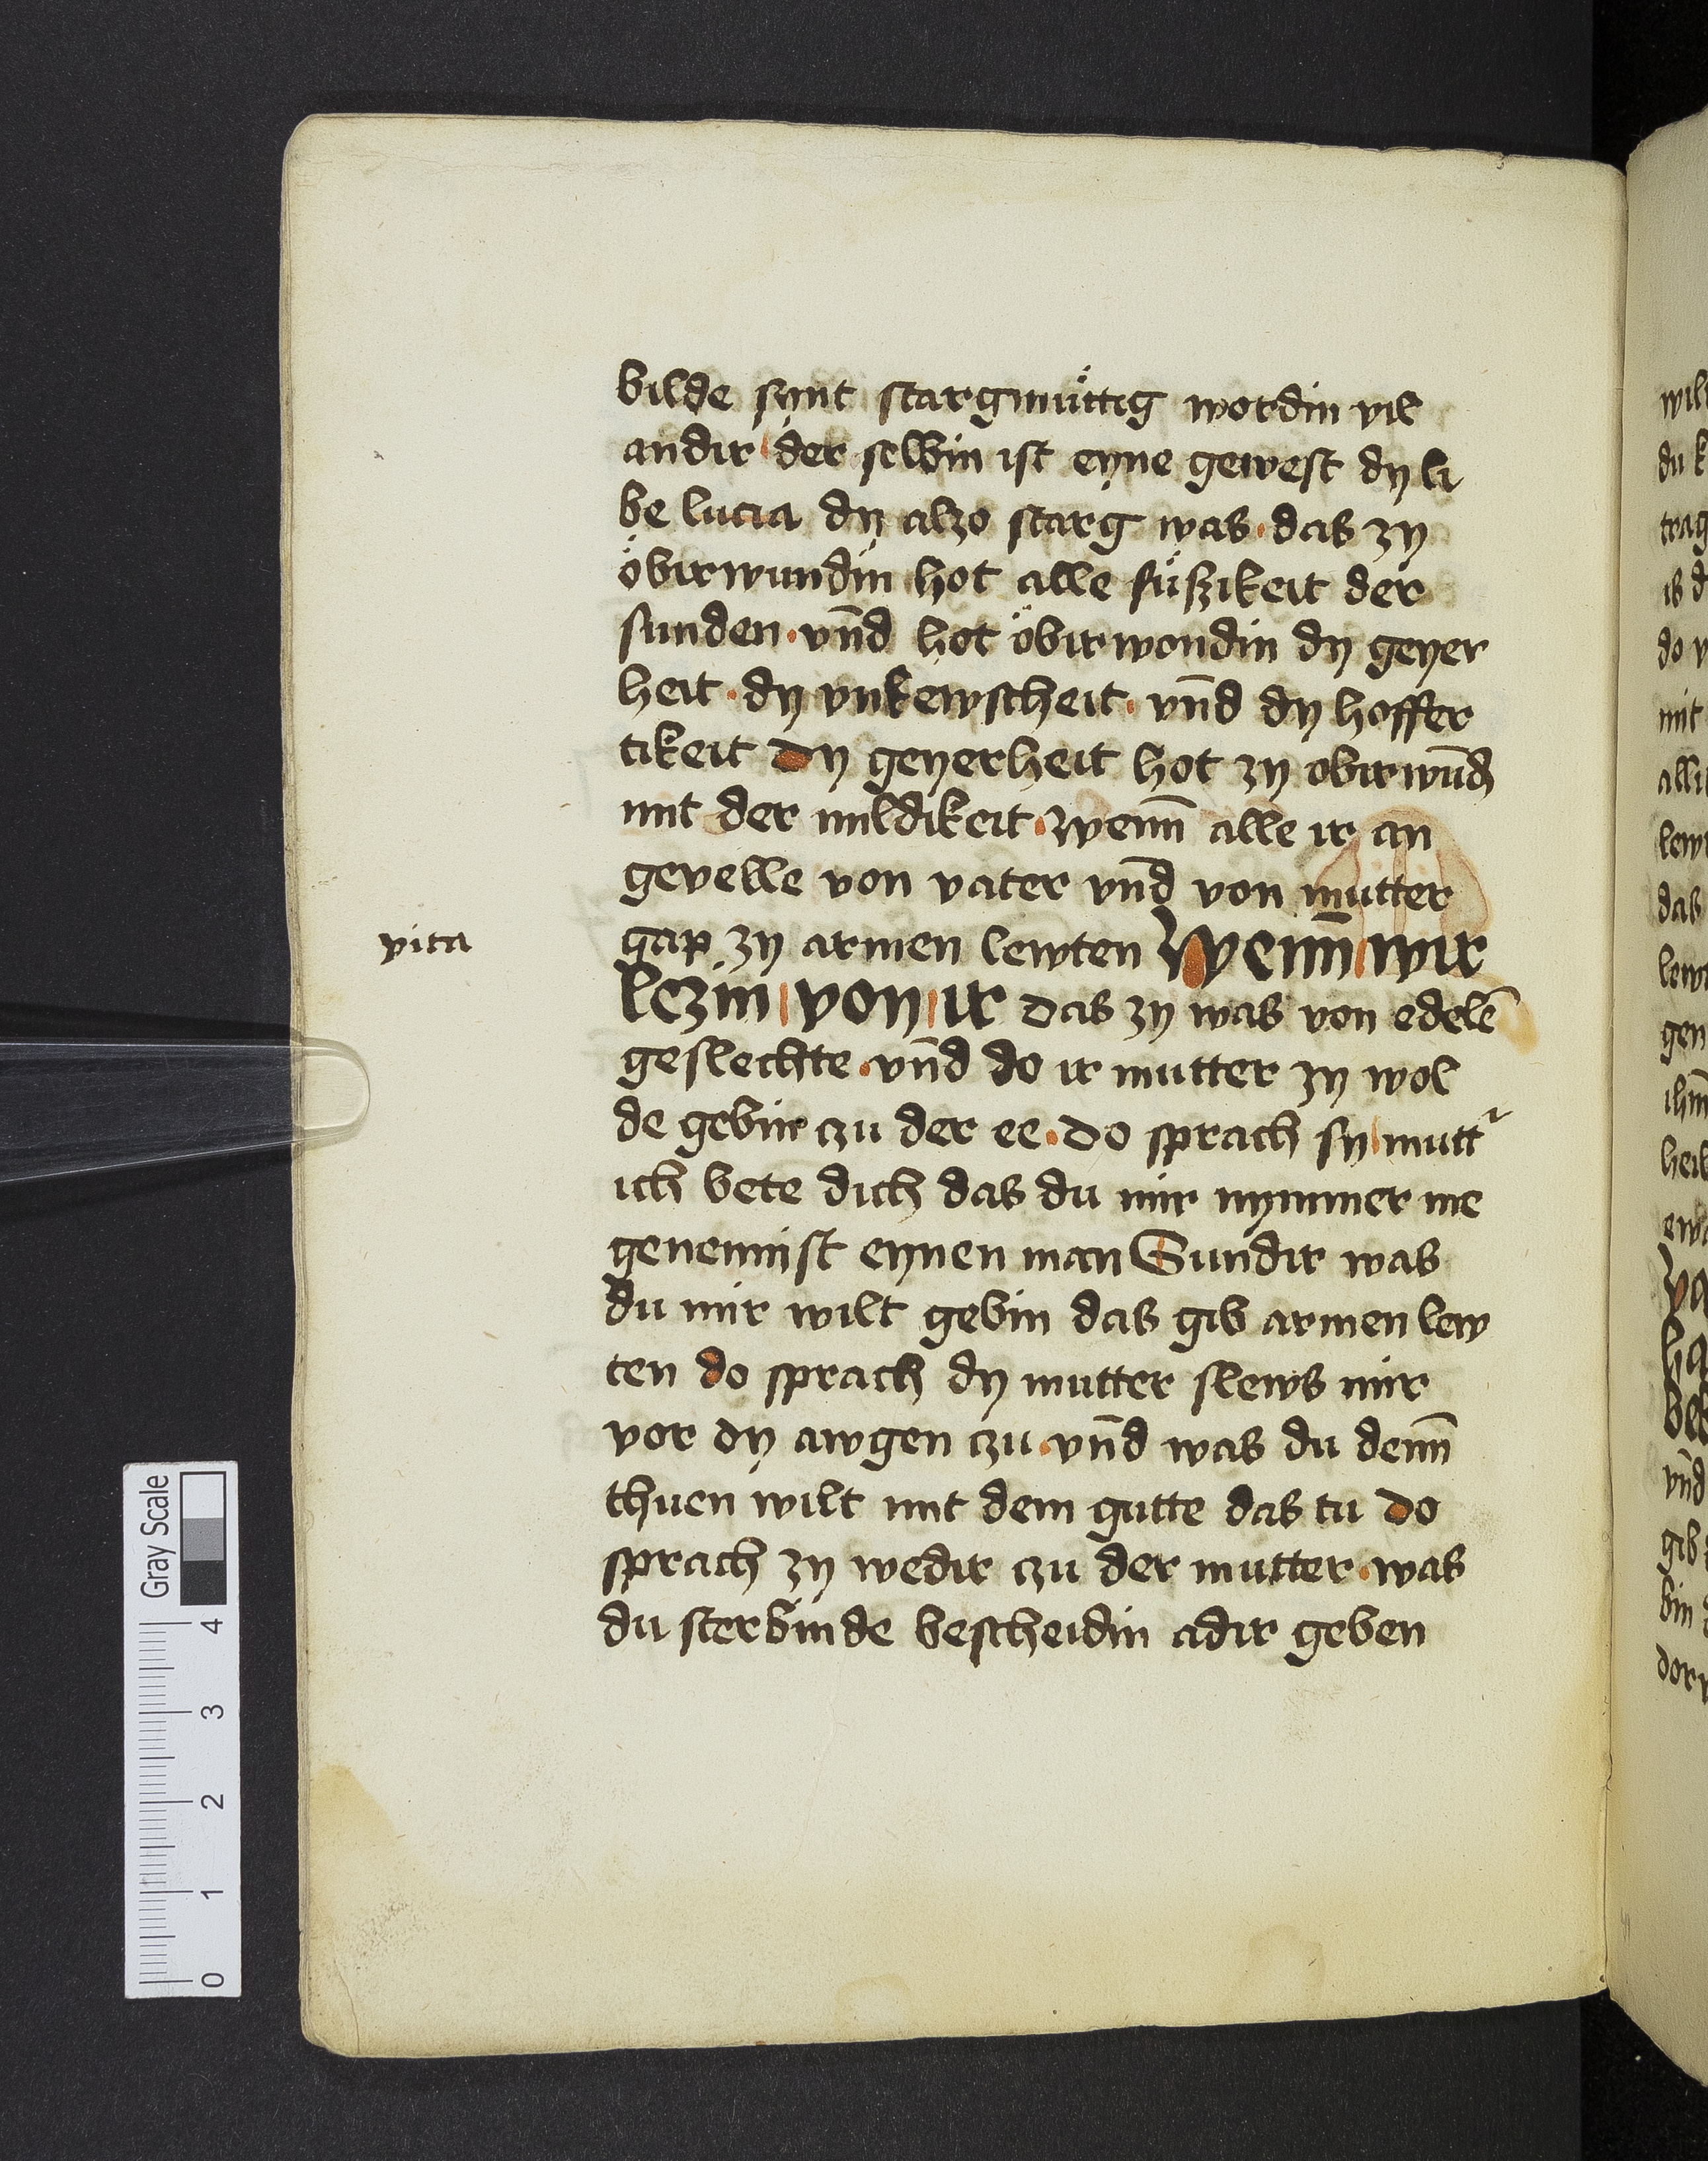 bilde synt stargmüttig wordin vil
andir der selbin ist eyne gewest dy li
be lucia dy alzo starg was · das zy
öbirwundin hot alle süszikeit der
sunden · vn̄d hot öbirwondin dy geyer
heit · dy vnkewscheit · vn̄d dy hoffer
tikeit Dy geyerheit hot zy obirwūd
mit der mildikeit · zwenn̄ alle ir an
gevelle von vater vn̄d von mutter
vita
gap zy armen lewten Wenn̄ wir
lezin von ir das zy was von edelē
geslechte · vn̄d do ir mutter zy wol
de gebin czu der ee · do sprach sy mutt'
ich bete dich das du mir nymmer me
gennenist eynen man Sundir was
du mir wilt gebin das gib armen lew
ten do sprach dy mutter slews mir
vor dy awgen czu · vn̄d was du denn̄
thuen wilt mit dem gutte das tu Do
sprach zy wedir czu der mutter · was
du sterbinde bescheidin adir geben
wil
du k
trag
is d
do v
mit
alli
lew
das
lew
gen
heil
ewa
va
ha
bet
vn̄d
gib
bin
dor
Gray Scale
4
3
2
1
0